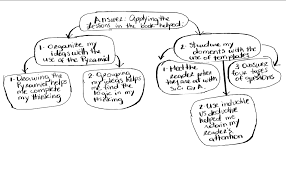 Answer: Applying the
lessons in the book helped
1- Organize my
ideas with the
use of the Pyramid
2- Structure my
documents with the
use of templates
1- Drawing the
Pyramid helps
me complete
my thinking
2- Grouping
my ideas helps
me find the
logic in my
thinking
1- Meet the
reader where
they are at with
S.C.Q.A
2- Use inductive
VS deductive
helped me
retain my
reader's
attention
3 Answer
four types
of questions